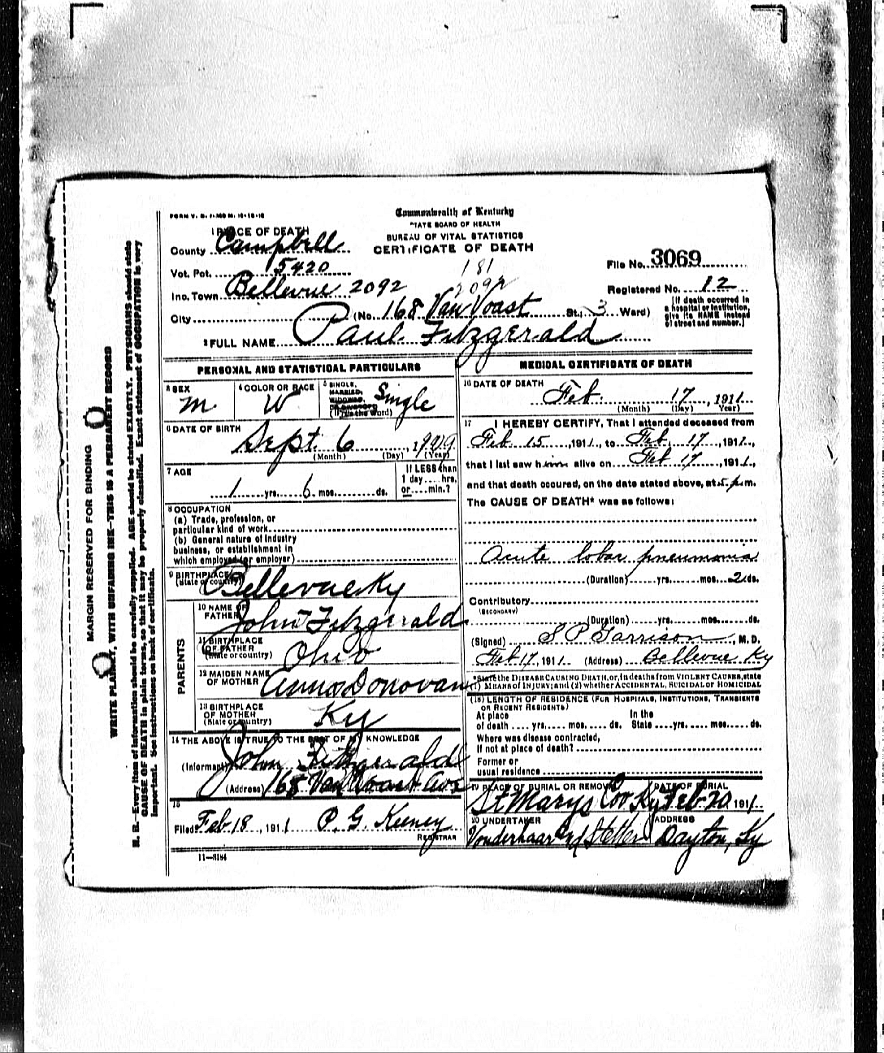 FORM V. S. 1-
Commonwealth of Kentucky
STATE BOARD OF HEALTH
BUREAU OF VITAL STATISTICS
CERTIFICATE OF DEATH
1 PLACE OF DEATH
County Campbell
Vot. Pct. 15420
Inc. Town Bellevue 2092
181
2092
File No. 3069
Registered No. 12
City (No. 168 Van Voast St.; 3 Ward)
[If death occurred in a hospital or institution, give its NAME instead of street and number.]
2 FULL NAME Paul Fitzgerald
PERSONAL AND STATISTICAL PARTICULARS
3 SEX m
4 COLOR OR RACE W
5 SINGLE, MARRIED, WIDOWED, OR DIVORCED (Write the word) Single
6 DATE OF BIRTH Sept. 6
(Month) (Day) (Year)
7 AGE 1 yrs. 6 mos. ds.
If LESS than 1 day hrs. or min.?
8 OCCUPATION
(a) Trade, profession, or particular kind of work
(b) General nature of industry business, or establishment in which employed (or employer)
9 BIRTHPLACE (State or country) Bellevue Ky
PARENTS
10 NAME OF FATHER John Fitzgerald
11 BIRTHPLACE OF FATHER (State or country) Ohio
12 MAIDEN NAME OF MOTHER Anna Donovan
13 BIRTHPLACE OF MOTHER (State or country) Ky
14 THE ABOVE IS TRUE TO THE BEST OF MY KNOWLEDGE
(Informant) John Fitzgerald
(Address) 168 Van Voast Ave
15
Filed Feb 18, 1911 P. G. Keeney
REGISTRAR
11-3184
MEDICAL CERTIFICATE OF DEATH
16 DATE OF DEATH Feb. 17, 1911
(Month) (Day) (Year)
17 I HEREBY CERTIFY, That I attended deceased from
Feb 15, 1911, to Feb. 17, 1911,
that I last saw him alive on Feb 17, 1911,
and that death occured, on the date stated above, at 5 p.m.
The CAUSE OF DEATH* was as follows:
Acute lobar pneumonia
(Duration) yrs. mos. 2 ds.
Contributory
(SECONDARY)
(Duration) yrs. mos. ds.
(Signed) S. P. Garrison, M. D.
Feb 17, 1911. (Address) Bellevue Ky
*State the DISEASE CAUSING DEATH, or, in deaths from VIOLENT CAUSES, state (1) MEANS OF INJURY; and (2) whether ACCIDENTAL, SUICIDAL OR HOMICIDAL
(18) LENGTH OF RESIDENCE (FOR HOSPITALS, INSTITUTIONS, TRANSIENTS OR RECENT RESIDENTS)
At place of death yrs. mos. ds. In the State yrs. mos. ds.
Where was disease contracted, If not at place of death?
Former or usual residence
19 PLACE OF BURIAL OR REMOVAL St Marys Cov Ky
DATE OF BURIAL Feb 20 191
20 UNDERTAKER Vonderhaar
ADDRESS Dayton, Ky
MARGIN RESERVED FOR BINDING
WRITE PLAINLY, WITH UNFADING INK—THIS IS A PERMANENT RECORD
N. B.—Every item of information should be carefully supplied. AGE should be stated EXACTLY. PHYSICIANS should state
CAUSE OF DEATH in plain terms, so that it may be properly classified. Exact statement of OCCUPATION is very
important. See instructions on back of certificate.